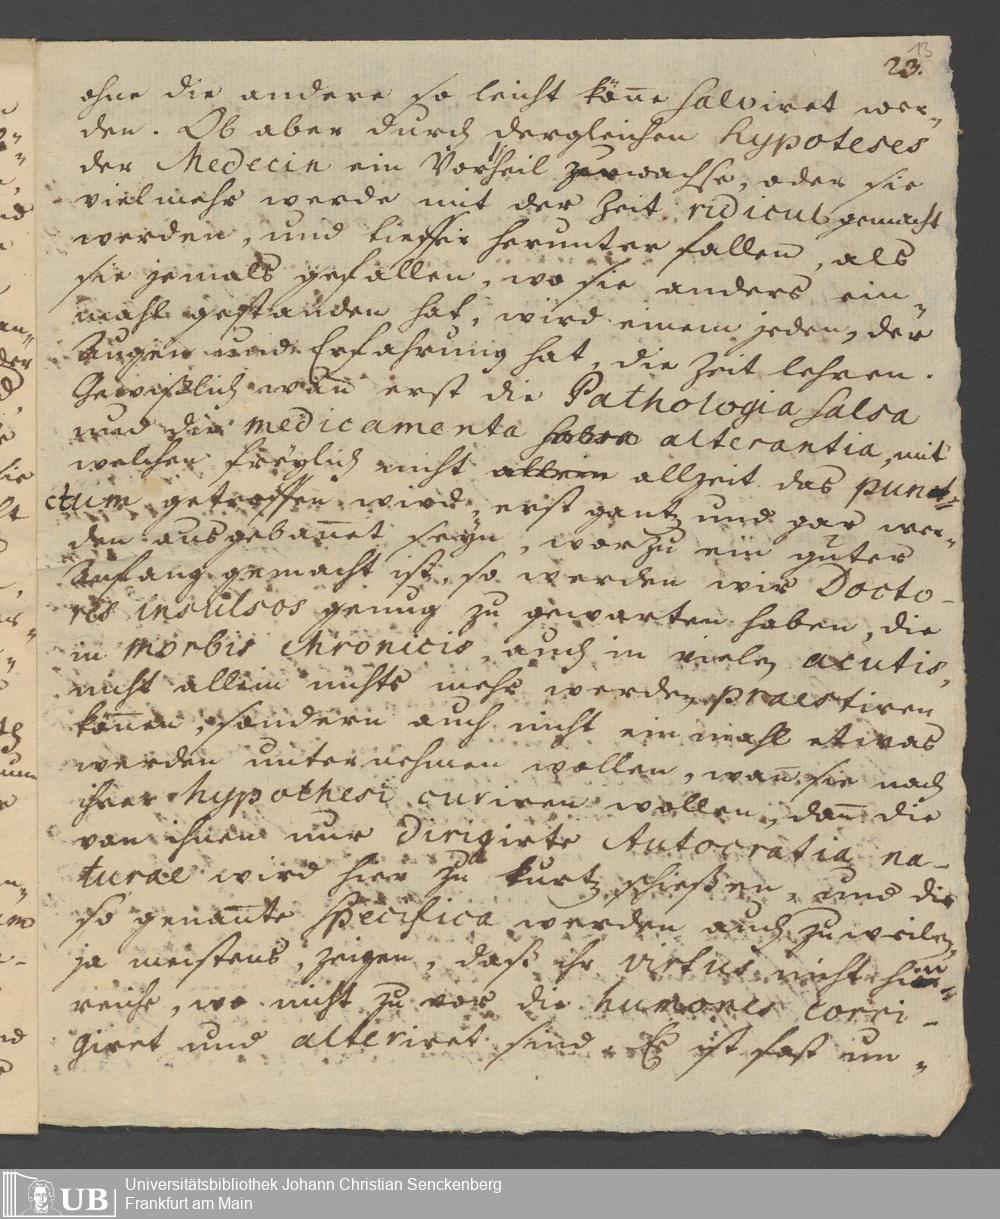 13
23.
ohne die andere so leicht köñe salviret wer„
den. Ob aber durch dergleichen hypoteses
der Medecin ein Vortheil zuwachse, oder sie
vielmehr werde mit der Zeit ridicul gemacht
werden, und tieffer herunter fallen, als
sie jemals gefallen, wo sie anders ein„
mahl gestanden hat, wird einem jeden, der
Augen und Erfahrung hat, die Zeit lehren.
Gewißlich wañ erst die Pathologia salsa
und die medicamenta alterantia, mit
welchen freylich nicht allein allzeit das punct„
ctum getroffen wird, erst gantz und gar wer„
den ausgebañet seyn, worzu ein guter
Anfang gemacht ist, so werden wir Docto-
res insulsos genug zu gewarten haben, die
in morbis chronicis, auch in vielen acutis,
nicht allein nichts mehr werden praestiren
köñen, sondern auch nicht ein mahl etwas
werden unternehmen wollen, wañ sie nach
ihrer hypothesi curiren wollen, dañ die
von ihnen nur dirigirte Autocratia na-
turae wird hier zu kurtz schießen, und die
so genañte specifica werden auch zuweilen,
ja meistens, zeigen, daß ihr virtus nicht hin„
reiche, wo nicht zu vor die humores corri-
giret und alteriret sind. Es ist fast un„
UB
Universitätsbibliothek Johann Christian Senckenberg
Frankfurt am Main